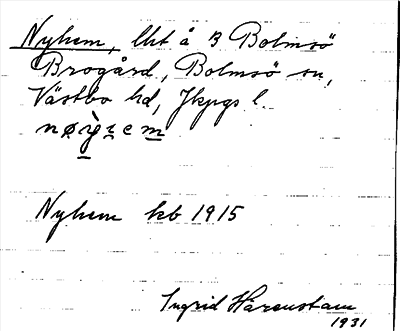 Nyhem, lht å 3 Bolmsö
Brogård, Bolmsö sn,
Västbo hd, Jkpgs l.
Nyhem kb 1915
Ingrid Hårenstam
1931